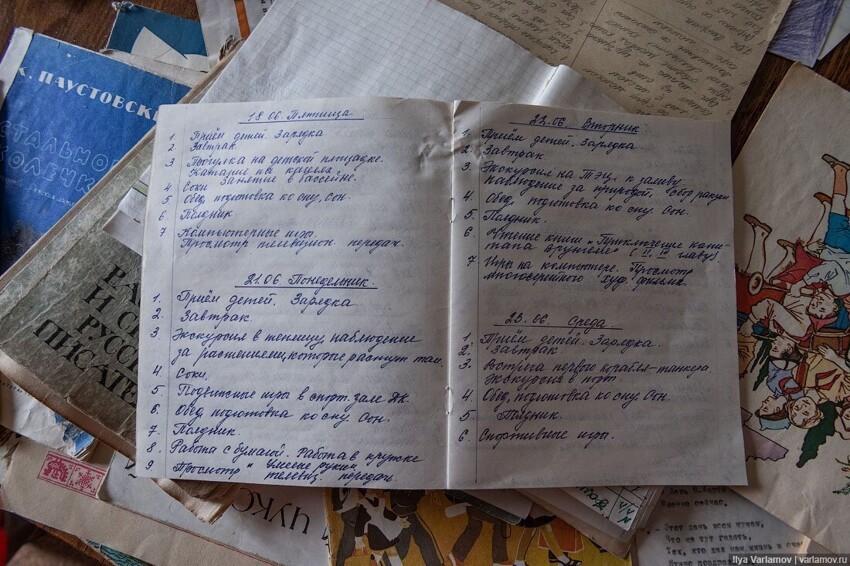 К. ПАУСТОВСКИЙ
СТАЛЬНОЕ
КОЛЕЧКО
РУССК
ПИСАТЕЛ
18.06 Пятница.
1. Приём детей. Зарядка
2 Завтрак
3 Прогулка на детской площадке.
Катание на
Занятие в бассейне.
4 Соки.
5 Обед, подготовка ко сну. Сон.
6 Полдник
7 Компьютерные игры.
Просмотр телевизион. передач.
21.06 Понедельник.
1. Приём детей. Зарядка
2. Завтрак
3. Экскурсия в теплицу, наблюдение
за растениями, которые растут там.
4. Соки.
5. Подвижные игры в спорт. зале ДК.
6. Обед, подготовка ко сну. Сон.
7 Полдник.
8. Работа с бумагой. Работа в кружке
"Умелые руки"
9 Просмотр телевиз. передач.
22.06 Вторник
1. Приём детей. Зарядка
2. Завтрак
3. Экскурсия на ТЭЦ, к заливу
Наблюдение за природой, сбор ракуш
4. Обед, подготовка ко сну. Сон.
5. Полдник.
6 Чтение книги "Приключение капи-
тана Врунгеля" (главу)
7 Игры на компьютере. Просмотр
многосерийного худ. фильма.
23.06. Среда.
1. Приём детей. Зарядка.
2. Завтрак
3. Встреча первого корабля-танкера
Экскурсия в порт.
4 Обед, подготовка ко сну. Сон.
5 Полдник.
6. Спортивные игры.
ЧУКО
Ilya Varlamov | varlamov.ru